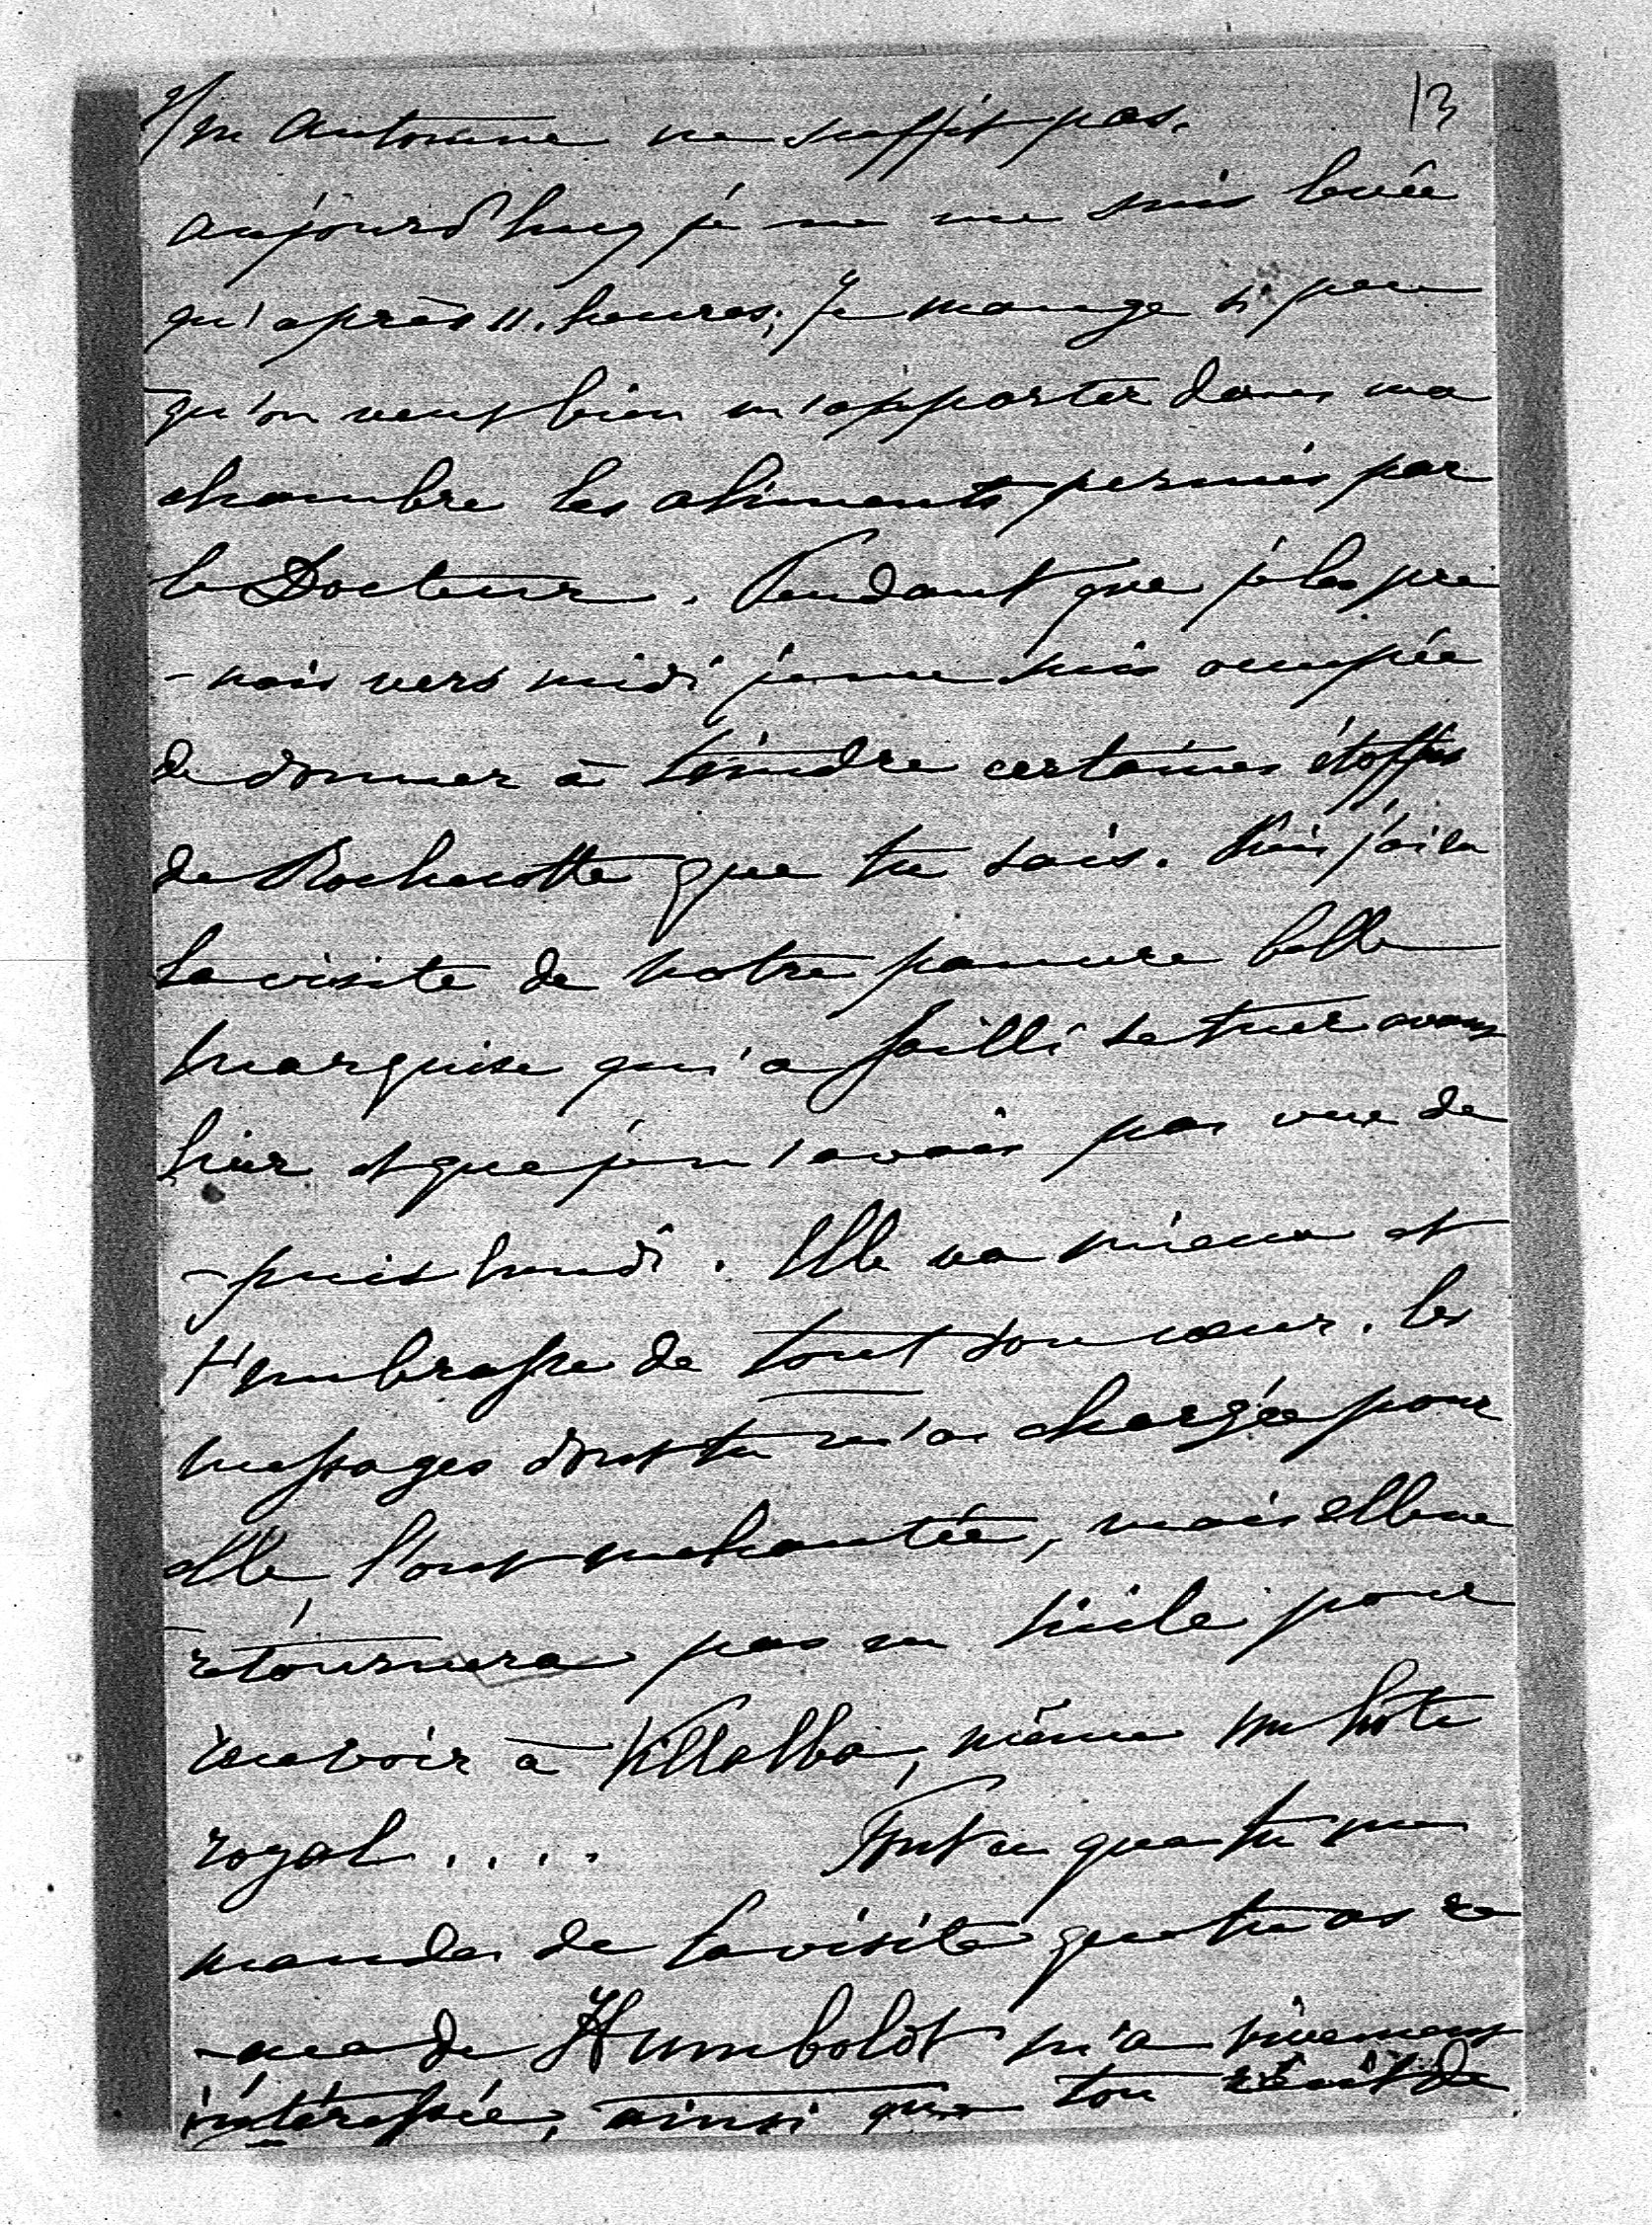 13
2/ Un Automne ne suffit pas.
aujourd'huy je ne me suis levée
qu'après 11. heures; Je mange si peu
qu'on veut bien m'apporter dans ma
chambre les aliments permis par
le Docteur. Pendant que je les pre
-nais vers midi je me suis occupée
de donner à teindre certaines étoffes
de Rochecotte que tu sais. Puis j'ai eu
la visite de notre pauvre belle
Marquise qui a failli se tuer avant
hier et que je n'avais pas vue de
-puis lundi. Elle va mieux et
t'embrasse de tout son cœur. les
messages dont tu m'as chargée pour
elle l'ont enchantée, mais elle ne
retournera pas en Sicile pour
recevoir à Villalba, même un hôte
royal.... Tout ce que tu me
mandes de la visite que tu as re
-çue de Humboldt m'a vivement
intéressée, ainsi que ton récit de